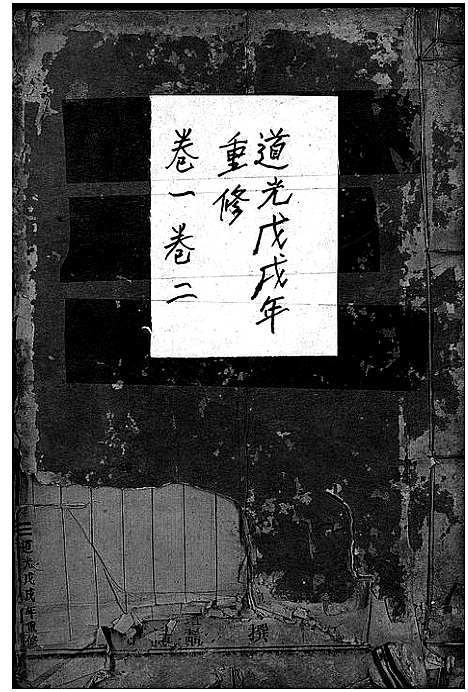 道光戊戌年
重修
卷一卷二
道光戊戌年重修
撰